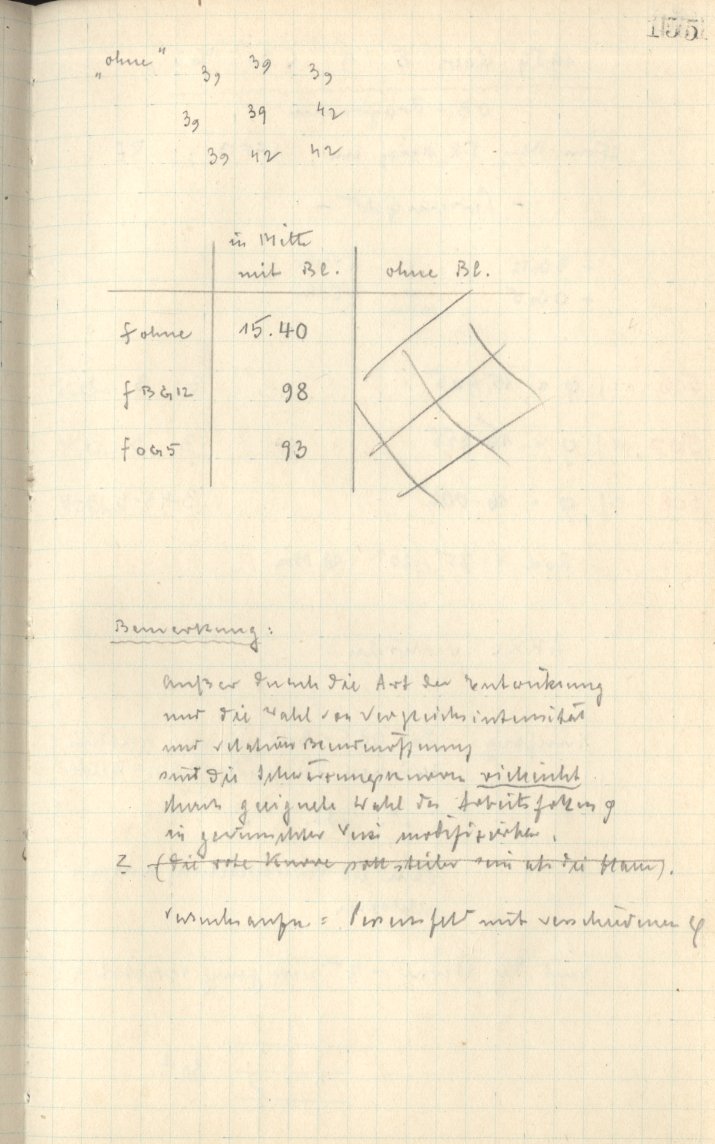 155
„ohne“
39 39 39
39 39 42
39 42 42
in Mitte
mit Bl. ohne Bl.
f ohne 15.40
f BG12 98
f OG5 93
Bemerkung:
Außer durch die Art der Entwicklung
und die Wahl von Vergleichsintensität
und relativer Blendenöffnung
sind die Schwärzungskurven vielleicht
durch geeignete Wahl des Arbeits φ
in gewünschter Weise modifizierbar.
(die rote Kurve soll steiler sein als die blaue).
Versuchsaufn = feld mit verschiedenen φ